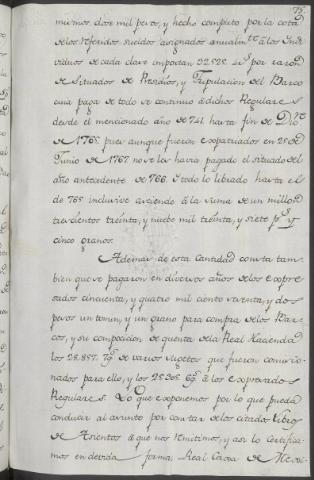 75.
mismos doze mil pesos, y hecho completo por la cota
de los referidos sueldos asignados anualmte. â los Indi
viduos de cada clase importan 32.525. ps. por razon
de Situados de Presidios, y Tripulacion del Barco
cuia paga de todo se continuo â dichos Regulares
desde el mencionado año de 741. hasta fin de Dizre.
de 1765. pues aunque fueron expatriados en 25 de
Junio de 1767 no se les havia pagado el situado del
año antecedente de 766. Y todo lo librado hasta el
de 765 inclusive asciende â la suma de un millon
trescientos treinta, y nuebe mil treinta, y siete ps. y
cinco granos.
Ademas de esta Cantidad consta tam-
bien que se pagaron en diversos años de los expre-
sados cinquenta, y quatro mil ciento noventa, y dos
pesos un tomin, y un grano para compra de los Bar-
cos, y su composicion de quenta de la Real Hacienda
los 28.887. de varios Sugetos que fueron comisio-
nados para ello, y los â los expresados
Regulares. Lo que exponemos por lo que pueda
conducir al asunto por constar de los citados Libros
de Asientos â que nos remitimos, y asi lo Certifica
mos en devida forma, Real Caxa de Mexi-